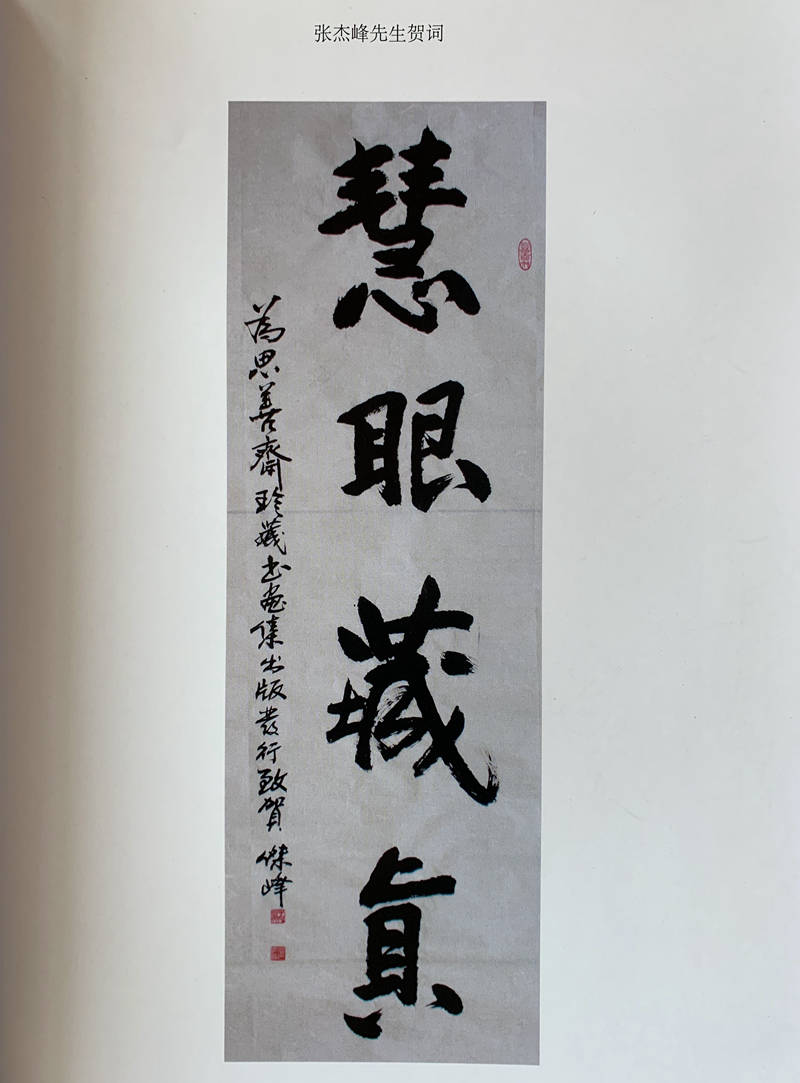 张杰峰先生贺词
慧眼藏真
為思善齋珍藏书画集出版發行致賀 傑峰